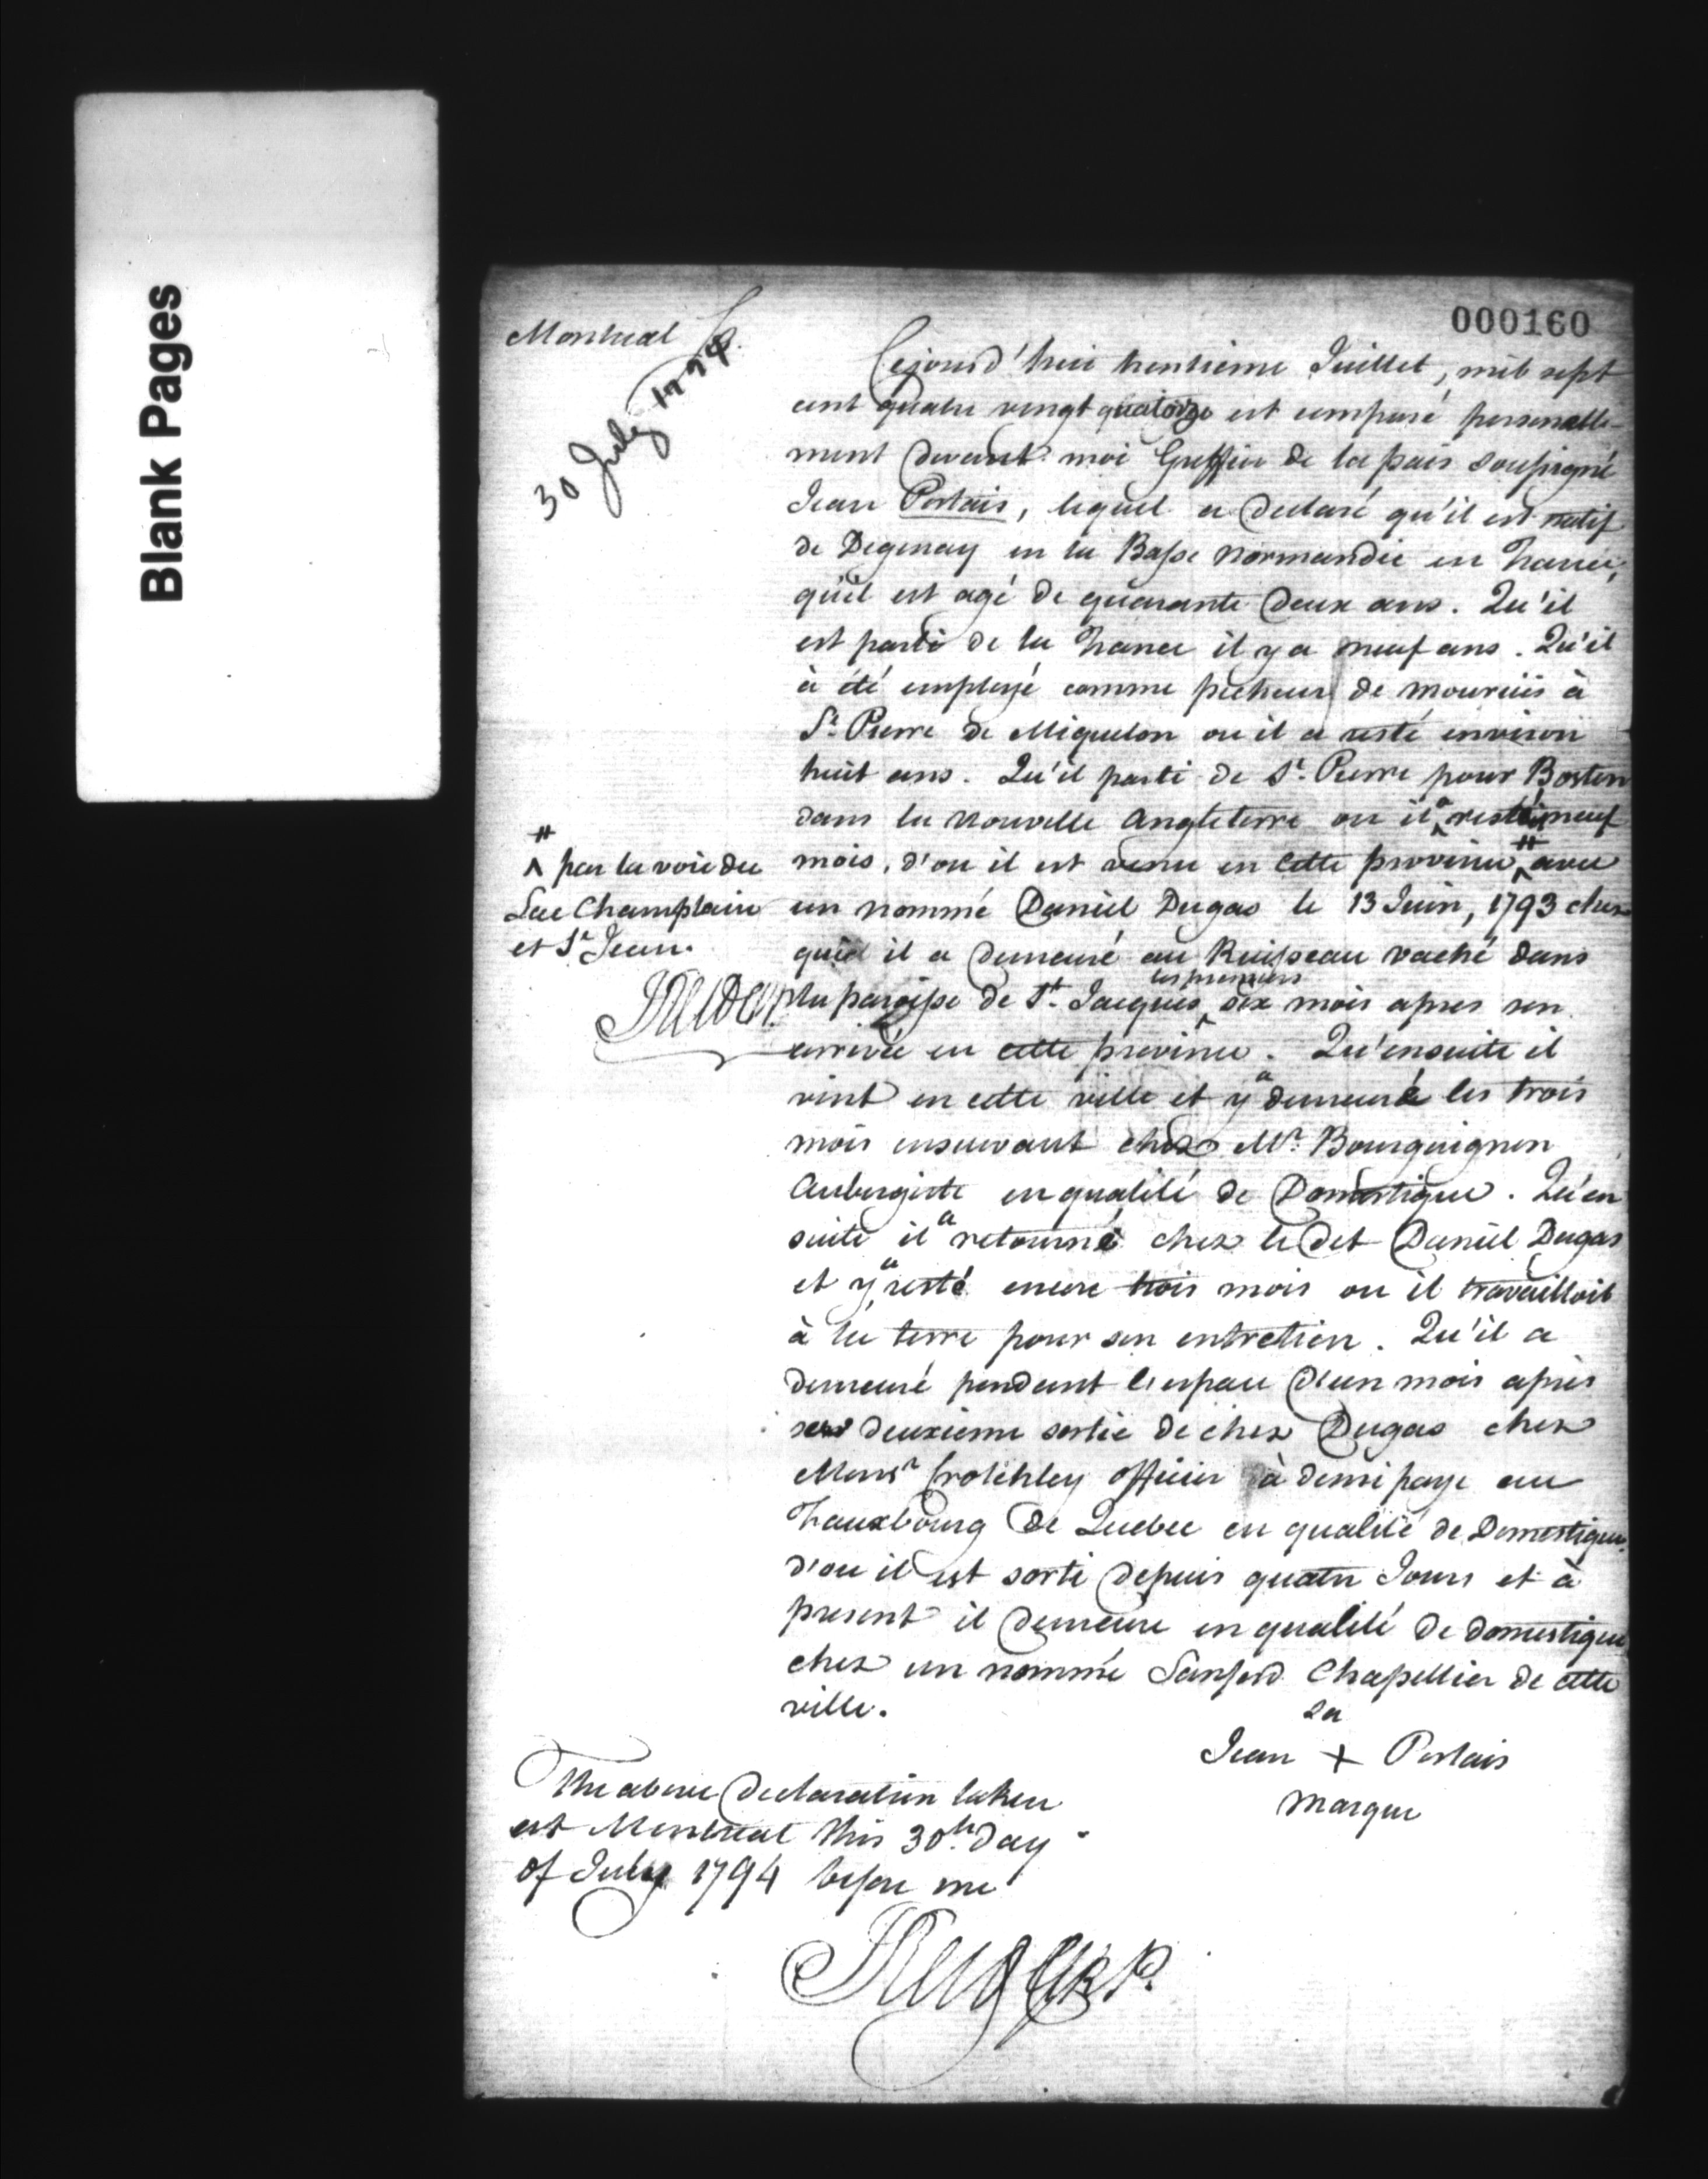 Blank Pages
000160
Montreal
30 July 1794
Cejourd'hui trentieme Juillet, mil sept
cent quatre vingt quatorze est comparé personelle-
ment devant moi Greffier de la paix soussigné
Jean Portais, lequel a declaré qu'il est natif
de Degenay en la Basse Normandie en France,
qu'il est agé de quarante deux ans. Qu'il
est parti de la France il y a neuf ans. Qu'il
à été employé comme pecheur de mouruis à
St. Pierre de Miquelon ou il a resté environ
huit ans. Qu'il parti de St. Pierre pour Boston
dans la Nouvelle Angleterre ou il a resté neuf
mois, d'ou il est venu en cette province # avec
# par la voie du
Lac Champlain
et St. Jean.
un nommé Daniel Dugas le 13 Juin, 1793 chez
qui il a demeuré au Ruisseau vaché dans
la paroisse de St. Jacques les premiers six mois apres son
arrivée en cette province. Qu'ensuite il
vint en cette ville et y a demeuré les trois
mois ensuivant chez Mr. Bourguignon
Aubergiste en qualité de Domestique. Qu'en
suite il a retourné chez le dit Daniel Dugas
et y a resté encore trois mois ou il travailloit
à la terre pour son entretien. Qu'il a
demeuré pendant l'espace d'un mois après
sa deuxieme sortie de chez Dugas chez
Monsr Crotchley officier à demi paye au
Fauxbourg de Quebec en qualité de Domestique
d'ou il est sorti depuis quatre Jours et à
present il demeure en qualité de domestique
chez un nommé Sanford Chapellier de cette
ville.
Sa
Jean + Portais
marque
The above Declaration taken
at Montreal this 30th. day
of July 1794 before me